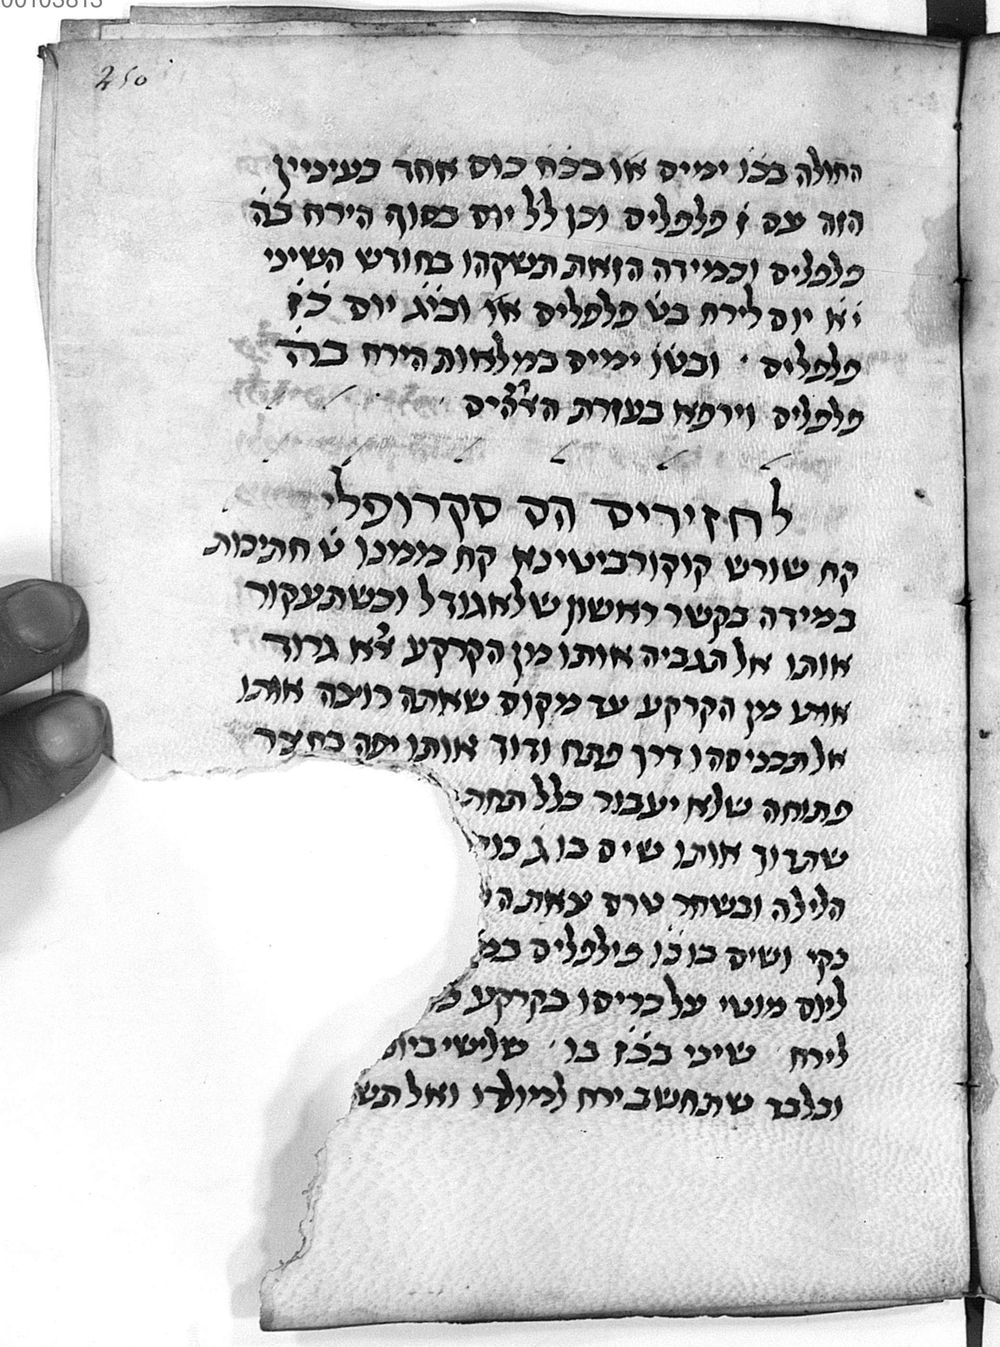 00103813
250
החולה בכ̇ו ימיים או בכ̇ח כוס אחד כעיניין
הזה עם ז פלפלים וכן לל יום בסוף הירח כ̇ה
פלפלים וכמידה הזאת תשקהו בחודש השיני
י̇א יום לירח בט̇ פלפלים או וכי̇ג יום כ̇ז
פלפלים ובטו ימיים במלאות הירח בה
פלפלים וירפא בעזרת
לחזירים הם סקרופלי
קח שורש קוקורביטינא קח ממנו ט̇ חתיכות
במידה בקשר ראשון שלאגודל וכשתעקור
אותו אל תגביה אותו מן הקרקע א̇א גרור
אותו מן הקרקע עד מקום שאתה רוצה אותו
אל תכניסהו דרך פתח ודוך אותו יפה בחצר
פתוחה שלא יעבור כלל תחת
שתדוך אותו שים בו ג̇
הלילה ובשחר טרם צאת
נקי ושים בו כ̇ו פילפלים
ליום מוטי על כריסו בקרקע
לירח שיני בכ̇ז בו שלישי
ובלבד שתחשב ירח למולדו ואל